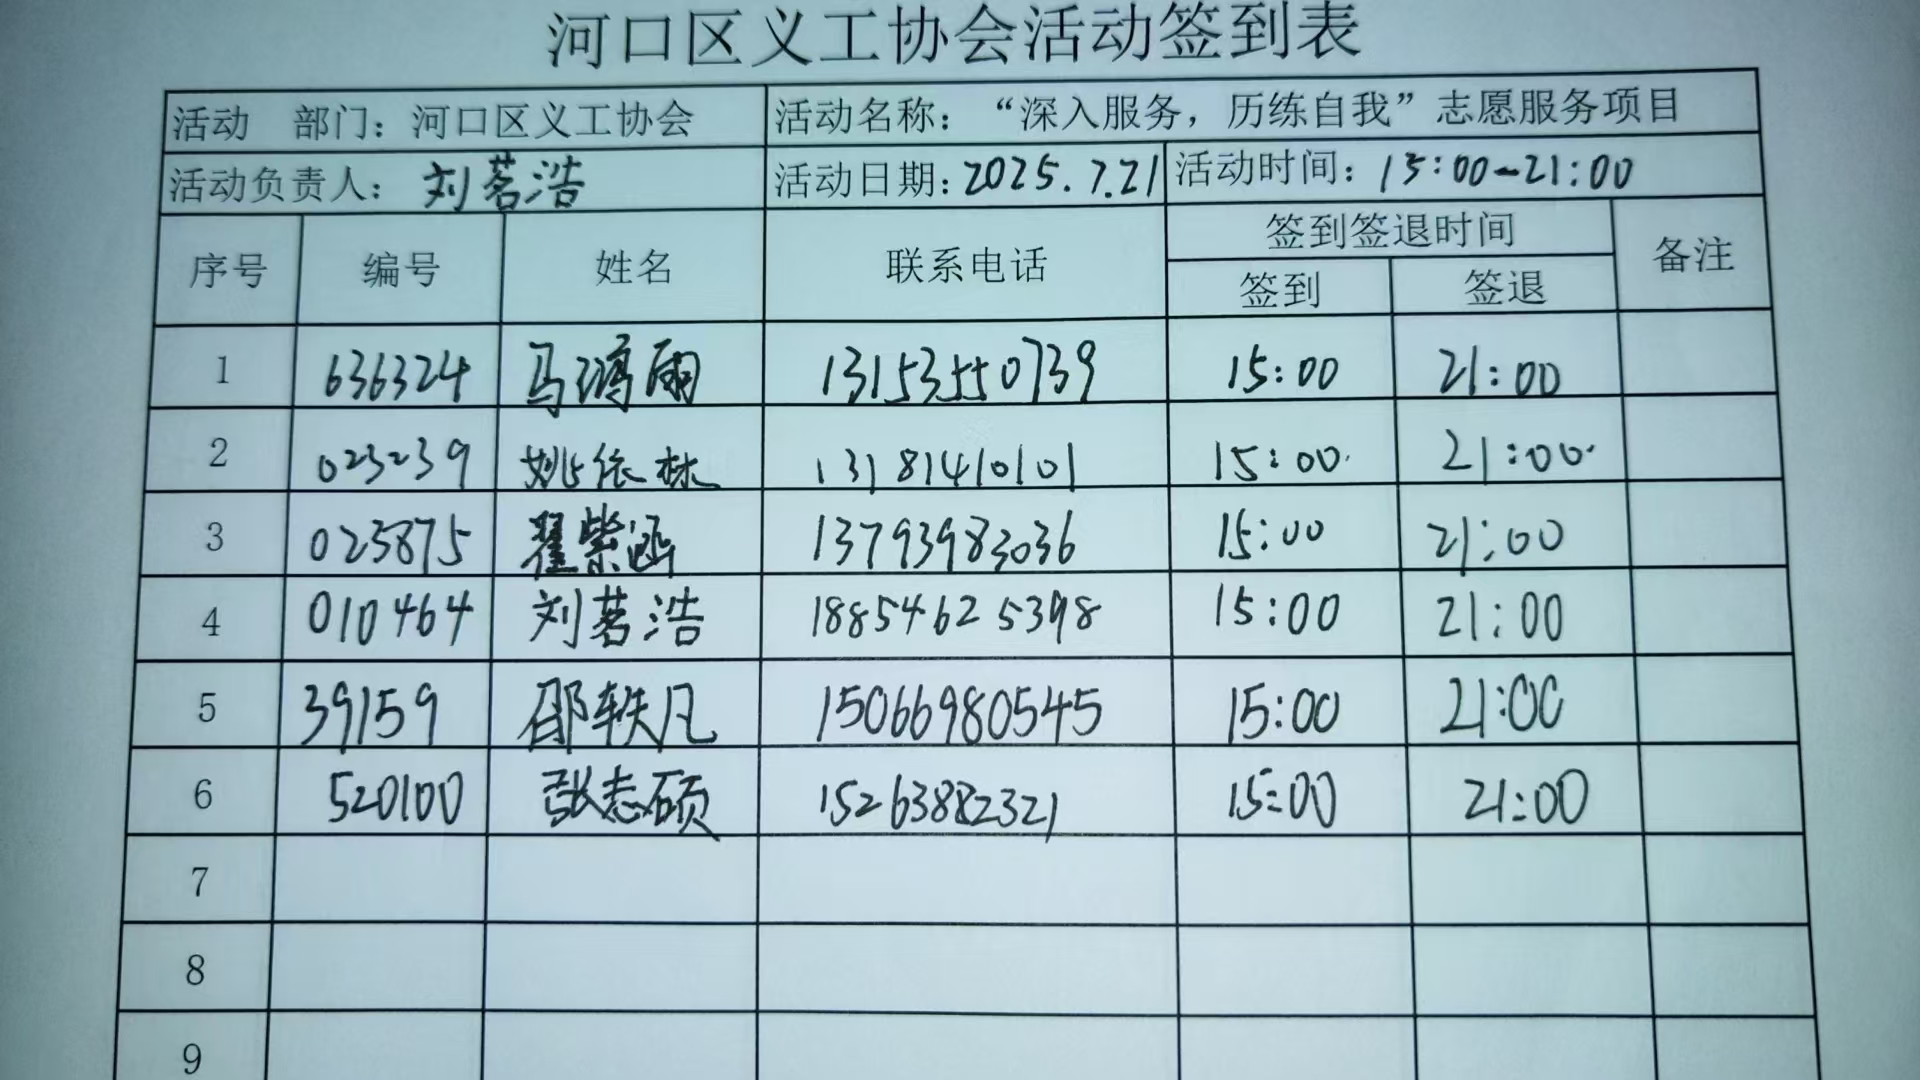 河口区义工协会活动签到表
活动 部门：河口区义工协会 活动名称：“深入服务，历练自我”志愿服务项目
活动负责人：刘茗浩 活动日期：2025.7.21 活动时间：15:00-21:00
序号 编号 姓名 联系电话 签到签退时间 备注
签到 签退
1 636324 马鸿雨 13153550739 15:00 21:00
2 023239 姚依林 13181410101 15:00 21:00
3 023875 翟紫涵 13793983036 15:00 21:00
4 010464 刘茗浩 18854625398 15:00 21:00
5 39159 邵轶凡 15066980545 15:00 21:00
6 520100 张志硕 15263882321 15:00 21:00
7
8
9